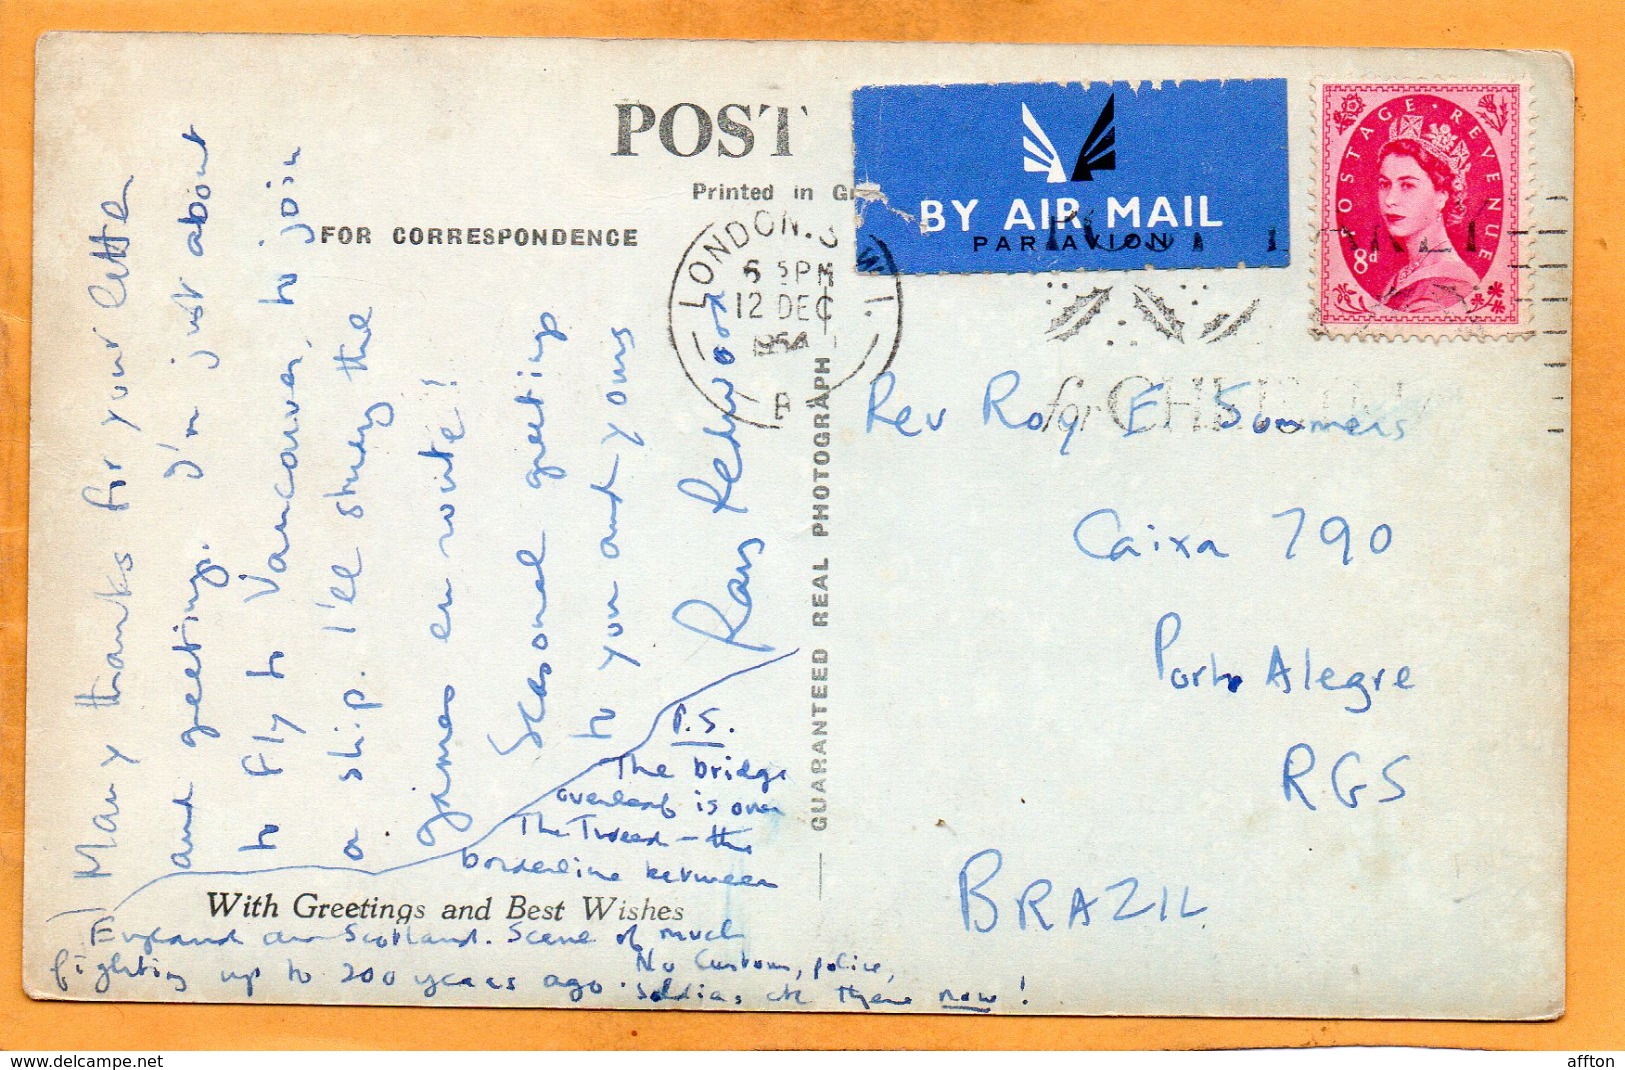 POST
Printed in G
FOR CORRESPONDENCE
BY AIR MAIL
PAR AVION
POSTAGE REVENUE
8d
LONDON. S.W.1.
5 PM
12 DEC
1954
B
for CHRISTMAS
Many thanks for your letter
and greeting. I'm just about
to fly to Vancouver, to join
a ship. I'll study the
games en route!
Seasonal greeting
to you and yours
Ray Redwood
P.S.
The bridge
overleaf is over
The Tweed - the
borderline between
England and Scotland. Scene of much
fighting up to 200 years ago.
No Customs, police,
soldiers etc there now!
With Greetings and Best Wishes
GUARANTEED REAL PHOTOGRAPH
Rev Roy E Sommers
Caixa 790
Porto Alegre
RGS
BRAZIL
https://www.delcampe.net
affton